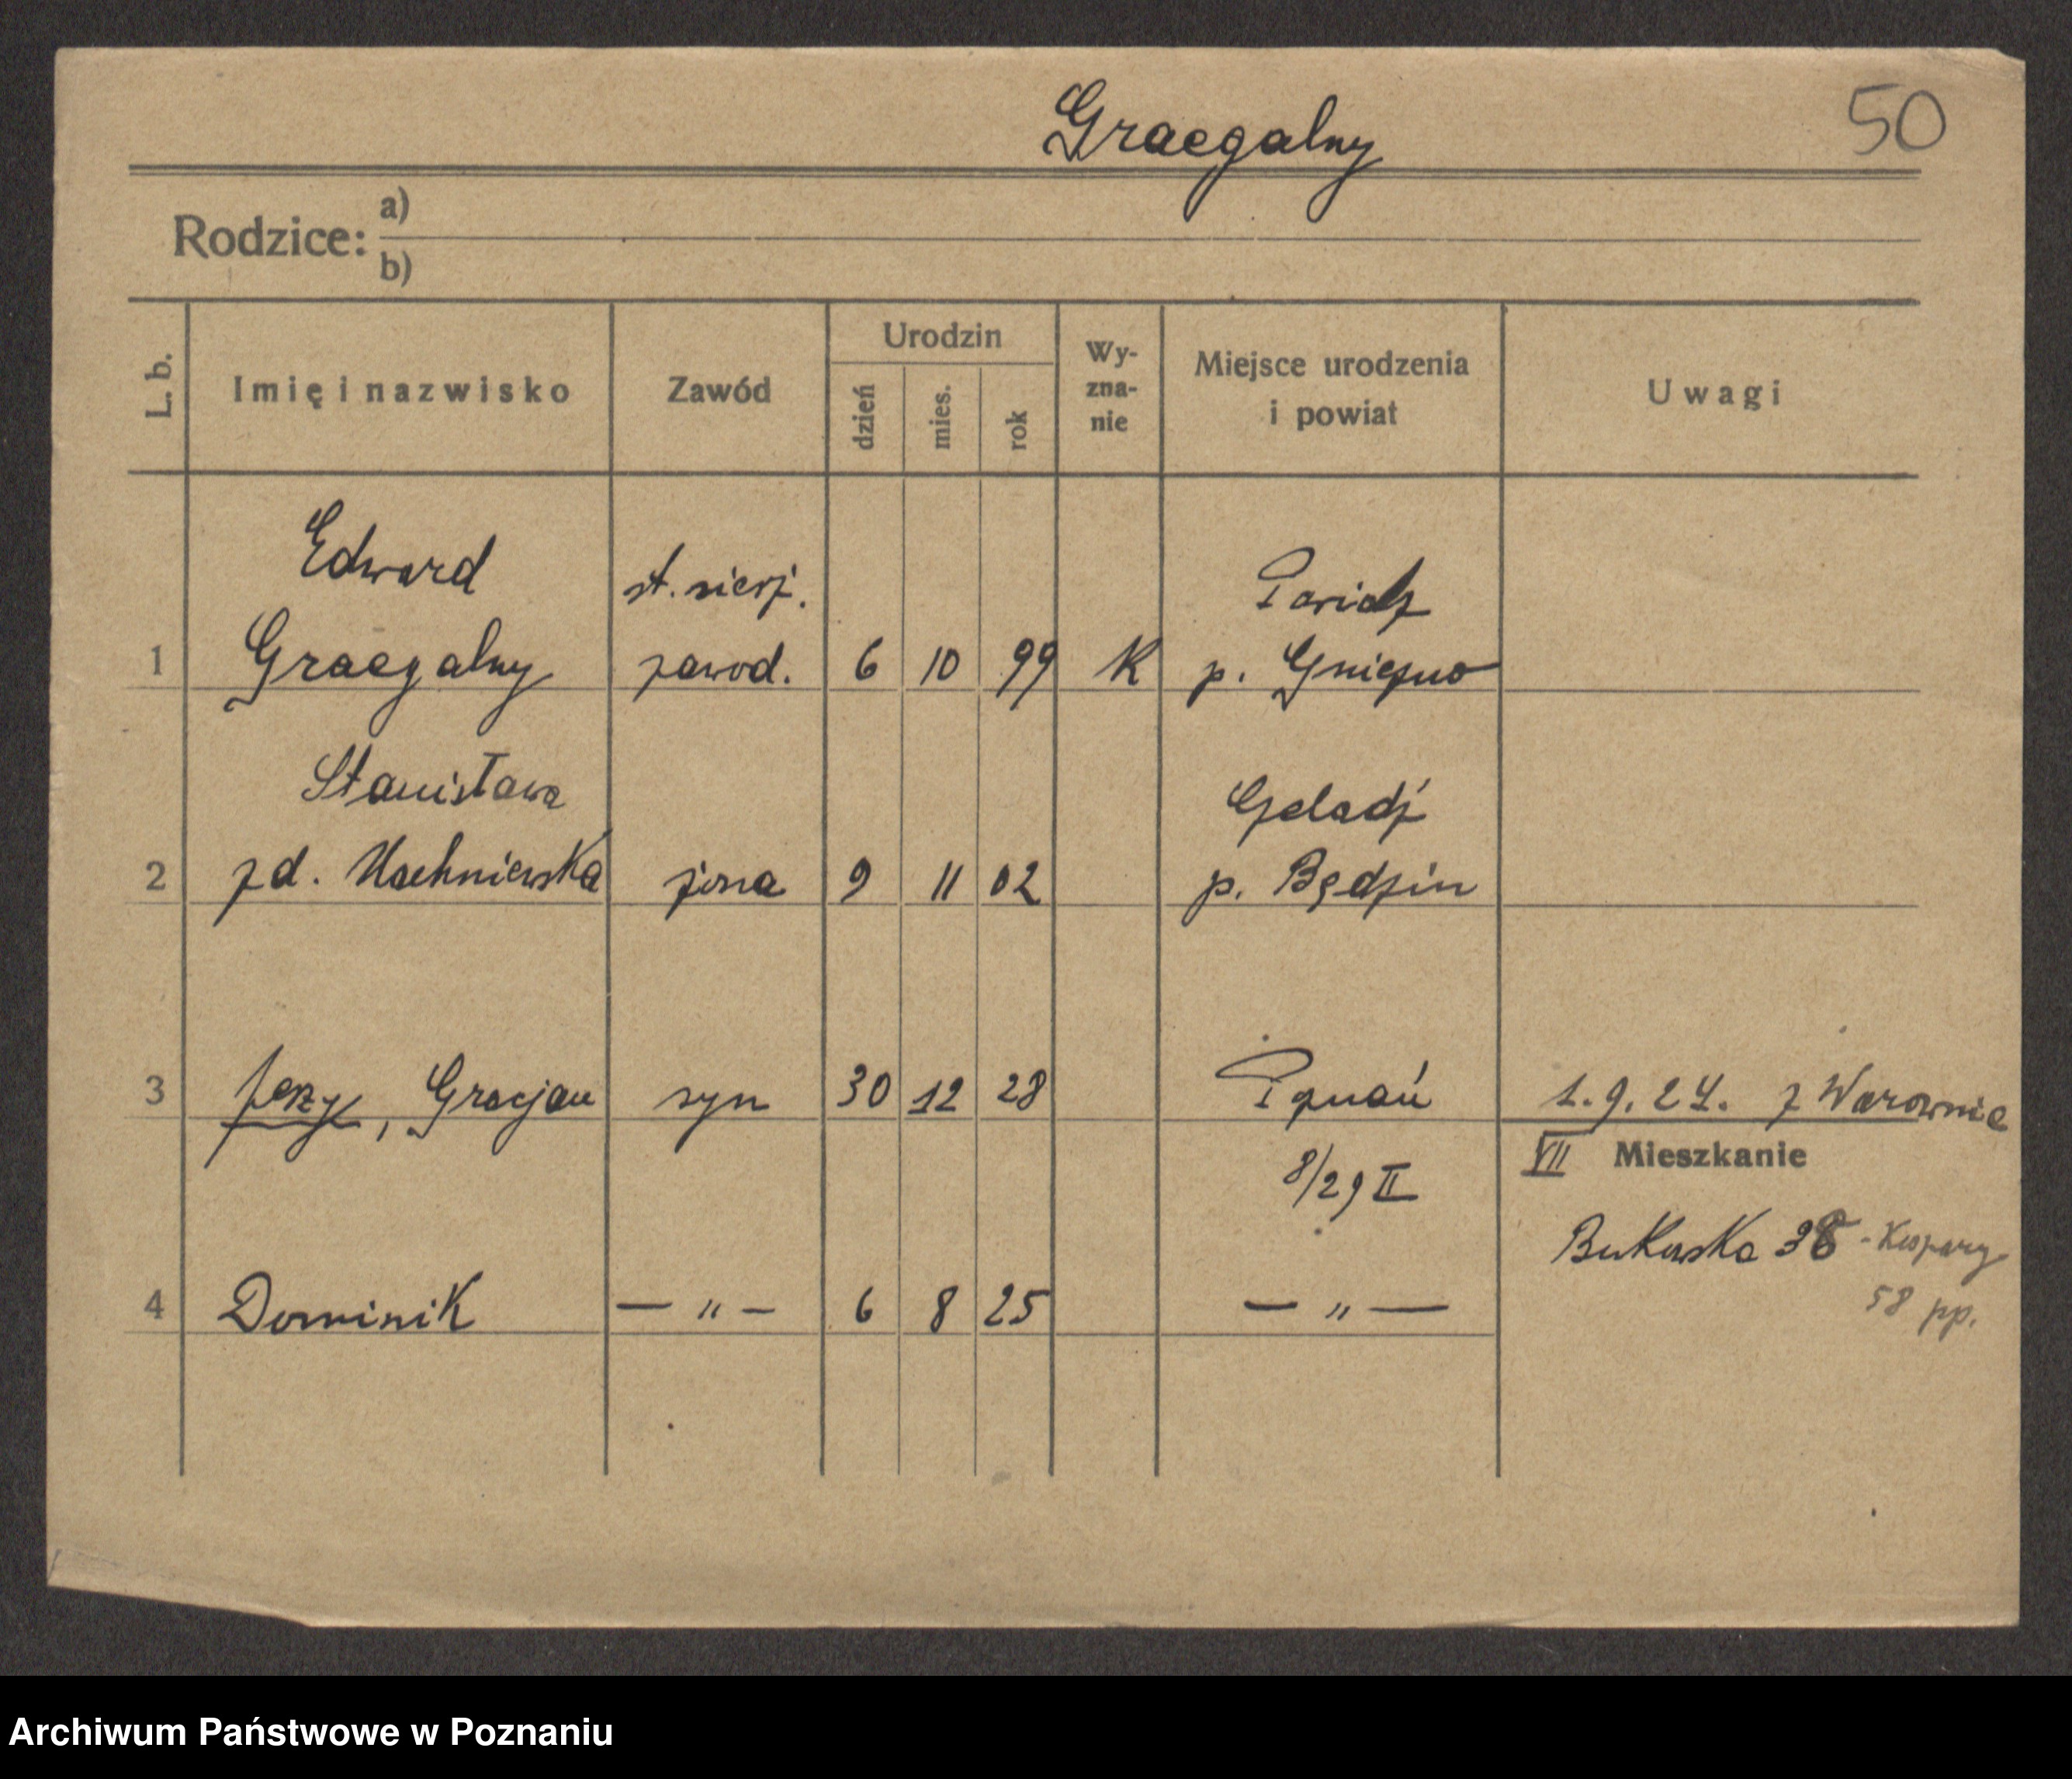 Graczalny
50
Rodzice: a)
b)
L. b.
Imię i nazwisko
Zawód
Urodzin
dzień
mies.
rok
Wy-
zna-
nie
Miejsce urodzenia
i powiat
Uwagi
Edward
st. sierż.
Powidz
1 Graczalny zawod. 6 10 99 K p. Gniezno
Stanisława
Czeladź
2 zd. żona 9 11 02 p. Będzin
3 Jerzy, Gracjan syn 30 12 28 Poznań 1.9.24. z
8/29 II
VII Mieszkanie
Bukowska 36 -
58 pp.
4 Dominik — „ — 6 8 25 — „ —
Archiwum Państwowe w Poznaniu